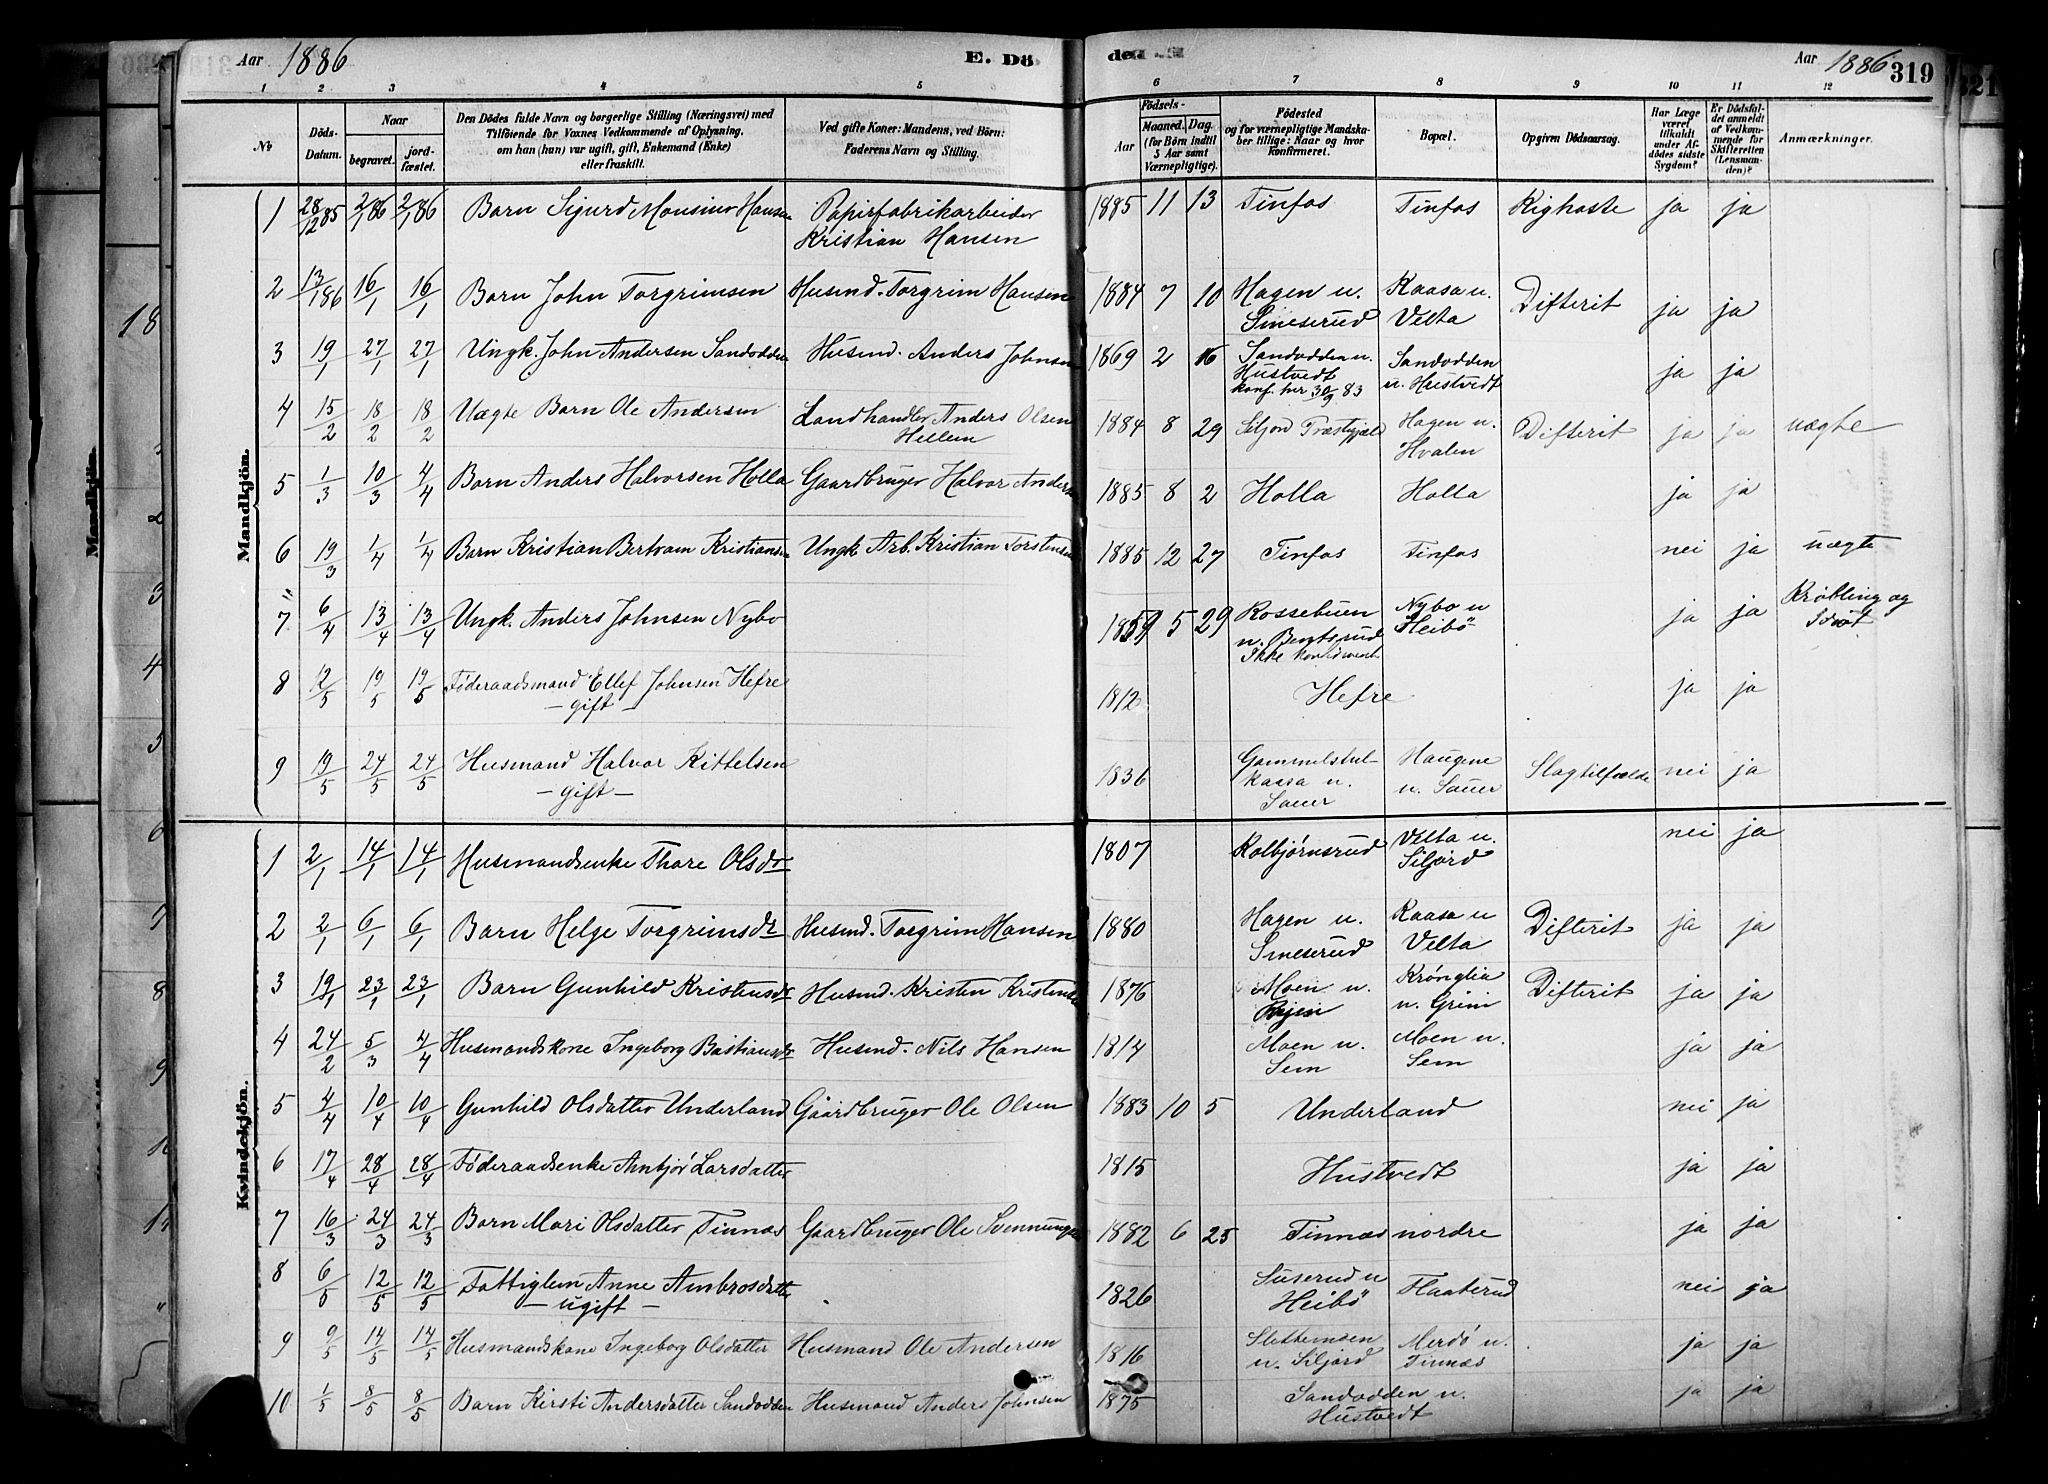 Aar 1886 E. Dö
den Aar 1886 319
321
1 2 3 4 5 6 7 8 9 10 11 12
No
Döds-Datum.
Naar
begravet.
jord-fæstet.
Den Dödes fulde Navn og borgerlige Stilling (Næringsvei) med
Tilföiende for Voxnes Vedkommende af Oplysning,
om han (hun) var ugift, gift, Enkemand (Enke)
eller fraskilt.
Ved gifte Koner: Mandens, ved Börn:
Faderens Navn og Stilling.
Födsels-
Aar
Maaned. Dag.
(for Börn indtil
5 Aar samt
Værnepligtige).
Födested
og for værnepligtige Mandska-
ber tillige: Naar og hvor
konfirmeret.
Bopæl.
Opgiven Dödsaarsag.
Har Læge
været
tilkaldt
under Af-
dödes sidste
Sygdom?
Er Dödsfal-
det anmeldt
af Vedkom-
mende for
Skifteretten
(Lensman-
den)?
Anmærkninger.
Mandkjön.
1 28/12 85 2/1 86 2/1 86 Barn Sigurd Monsius Hansen Papirfabrikarbeider Kristian Hansen 1885 11 13 Tinfos Tinfos Kighoste ja ja
2 13/1 86 16/1 16/1 Barn John Torgrimsen Husmd. Torgrim Hansen 1884 7 10 Hagen u. Smeserud Kaasa u. Velta Difterit ja ja
3 19/1 27/1 27/1 Ungk. John Andersen Sandodden Husmd. Anders Johnsen 1869 2 16 Sandodden u. Hustvedt konf. her 30/9 83 Sandodden u. Hustvedt ja ja
4 15/2 18/2 18/2 Uægte Barn Ole Andersen Landhandler Anders Olsen Hellem 1884 8 29 Siljord Præstegjæld Hagen u. Hvalen Difterit ja ja uægte
5 1/3 10/3 4/4 Barn Anders Halvorsen Holla Gaardbruger Halvor Anders 1885 8 2 Holla Holla ja ja
6 19/3 1/4 1/4 Barn Kristian Bertram Kristiansen Ungk. Arb. Kristian Torstensen 1885 12 27 Tinfos Tinfos nei ja uægte
7 6/4 13/4 13/4 Ungk. Anders Johnsen Nybo 1859 5 29 Rossebuen u. Bentsrud Ikke konfirmert Nybo u Heibö ja ja Krøbling og Idiot
8 12/5 19/5 19/5 Føderaadsmand Ellef Johnsen Hefre - gift - 1812 Hefre ja ja
9 19/5 24/5 24/5 Husmand Halvor Kittelsen - gift - 1836 Gammelshul- kaasa u. Sauer Haugene u. Sauer Slagtilfælde nei ja
Kvindekjön.
1 2/1 14/1 14/1 Husmandsenke Thore Olsdr 1807 Kolbjørnsrud Velta u. Siljord nei ja
2 2/1 6/1 6/1 Barn Helge Torgrimsdr Husmd. Torgrim Hansen 1880 Hagen u. Smeserud Kaasa u Velta Difterit ja ja
3 19/1 23/1 23/1 Barn Gunhild Kristensdr Husmd. Kristen Kristensen 1876 Moen u. Krónglia u. Grini Difterit ja ja
4 24/2 5/3 4/4 Husmandskone Ingeborg Bastiansdr Husmd. Nils Hansen 1814 Moen u. Sem Moen u. Sem ja ja
5 4/4 10/4 10/4 Gunhild Olsdatter Underland Gaardbruger Ole Olsen 1883 10 5 Underland nei ja
6 17/4 28/4 28/4 Føderaadsenke Anbjör Larsdatter 1815 Hustvedt ja ja
7 16/3 24/3 24/3 Barn Mari Olsdatter Tinnæs Gaardbruger Ole Svennungsen 1882 6 25 Tinnæs nordre ja ja
8 6/5 12/5 12/5 Fattiglem Anne Ambrosdatter - ugift - 1826 Suserud u Heibö Haaterud nei ja
9 9/5 14/5 14/5 Husmandskone Ingeborg Olsdatter Husmand Ole Andersen 1816 Slettemsen u. Siljord Merdö u. Tinnæs ja ja
10 1/5 8/5 8/5 Barn Kirsti Andersdatter Sandodden Husmand Anders Johnsen 1875 Sandodden u. Hustvedt ja ja